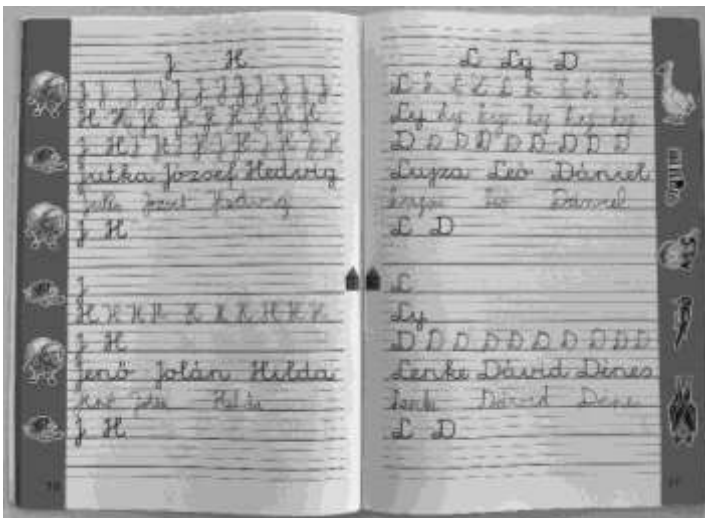 J H
J J J J J J J J J J J
H H H H H H H H H
J H J H J H J H J H
Jutka József Hedvig
Jutka József Hedvig
J H
J
H H H H H H H H H H
J H
Jenő Jolán Hilda
Jenő Jolán Hilda
J H
L Ly D
L L L L L L L L
Ly Ly Ly Ly Ly Ly
D D D D D D D D D
Lujza Leó Dániel
Lujza Leó Dániel
L D
L
Ly
D D D D D D D D D D
Lenke Dávid Dénes
Lenke Dávid Dénes
L D